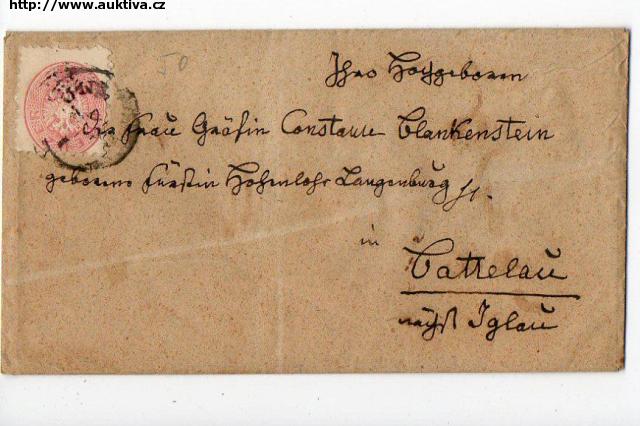 http://www.auktiva.cz
50
Ihro Hochgeboren
Die Frau Gräfin Constanze Blankenstein
geborene Fürstin Hohenlohe Langenburg
in
Battelau
nächst Iglau